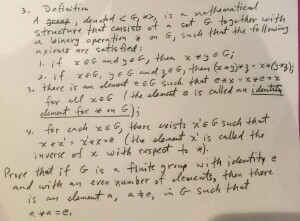 3. Definition
A group, denoted < G, *>, is a mathematical
structure that consists of a set G together with
a binary operation * on G, such that the following
axioms are satisfied:
1. if x∈G and y∈G, then x*y∈G;
2. if x∈G, y∈G and z∈G, then (x*y)*z = x*(y*z);
3. there is an element e∈G such that e*x = x*e = x
for all x∈G (the element e is called an identity
element for * on G);
4. for each x∈G, there exists x'∈G such that
x*x' = x'*x = e (the element x' is called the
inverse of x with respect to *).
Prove that if G is a finite group with identity e
and with an even number of elements, then there
is an element a, a≠e, in G such that
a*a=e.